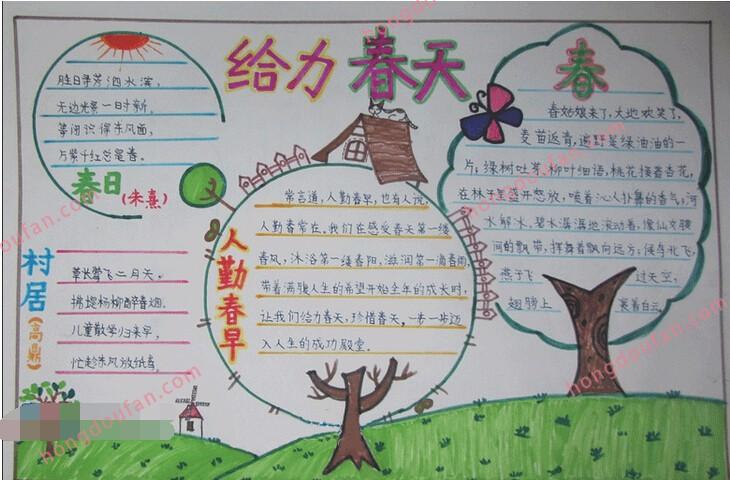 给力春天
胜日寻芳泗水滨，
无边光景一时新，
等闲识得东风面，
万紫千红总是春。
春日
(朱熹)
村居
《高鼎》
草长莺飞二月天。
拂堤杨柳醉春烟。
儿童散学归来早，
忙趁东风放纸鸢。
人勤春早
常言道，人勤春早，也有人说，
人勤春常在，我们在感受春天第一缕
春风，沐浴第一缕春阳，滋润第一滴春雨，
带着满腹人生的希望开始全年的成长时，
让我们给力春天，珍惜春天，一步一步迈
入人生的成功殿堂。
春
春姑娘来了，大地欢笑了，
麦苗返青，遍野是绿油油的一
片；绿树吐芽，柳叶细语，桃花接着杏花，
在林子里盛开怒放，喷着沁人扑鼻的香气；河
水解冰，碧水潺潺地流动着，像仙女腰
间的飘带，挥舞着飘向远方；候鸟北飞，
燕子飞 过天空，
翅膀上 裹着白云
hongdoufan.com
hongdoufan.com
hongdoufan.com
hongdoufan.com